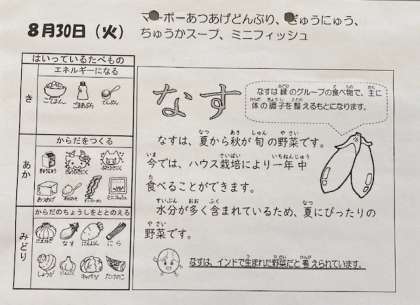 8月30日（火）
マーボーあつあげどんぶり、ぎゅうにゅう、
ちゅうかスープ、ミニフィッシュ
はいっているたべもの
エネルギーになる
き
ごはん
さとう
でんぷん
からだをつくる
あか
ぎゅうにゅう
あつあげ
みそ
からだのちょうしをととのえる
みどり
なす
にんじん
にら
しょうが
にんにく
キャベツ
なす
なすは緑のグループの食べ物で、主に
体の調子を整えるもとになります。
なすは、夏から秋が旬の野菜です。
今では、ハウス栽培により一年中
食べることができます。
水分が多く含まれているため、夏にぴったりの
野菜です。
なすは、インドで生まれた野菜だと考えられています。